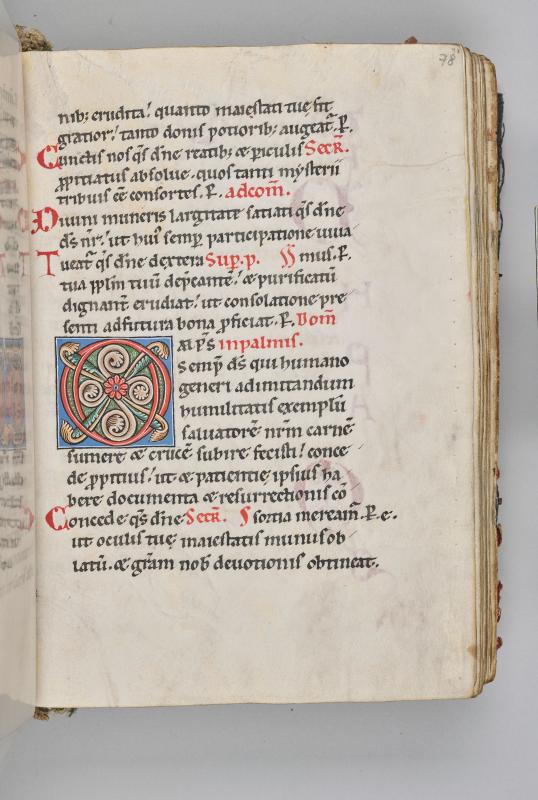 78
nib; erudita! quanto maiestati tuę fit
gratior! tanto donis potiorib; augeat̄. P̄.
Cunctis nos q̄s dn̄e reatib; & periculis Secr̄.
ꝓpitiatus absolue. quos tanti mysterii
tribuis eē consortes. P̄. adcom̄.
Diuini muneris largitate satiati q̄s dn̄e
ds̄ nr̄. ut hui᾿ semꝑ participatione uiua
Tueat̄ q̄s dn̄e dextera Sup. p. mus. P̄.
tua pplm̄ tuū dep̄cantē. & purificatū
dignant̄ erudiat! ut consolatione pre
senti ad futura bona ꝓficiat. P̄. Dom̄
O m̄ps̄ inpalmis.
semꝑ ds̄ qui humano
generi ad imitandum
humilitatis exemplū
saluatorē nr̄m carnē
sumere & crucē subire fecisti! conce
de ꝓpitius! ut & patientię ipsius ha
bere documenta & resurrectionis cō
Concede q̄s dn̄e Secr̄. sortia meream̄. P̄. e.
ut oculis tuę maiestatis munus ob
latū. & gr̄am nob̄ deuotionis obtineat.